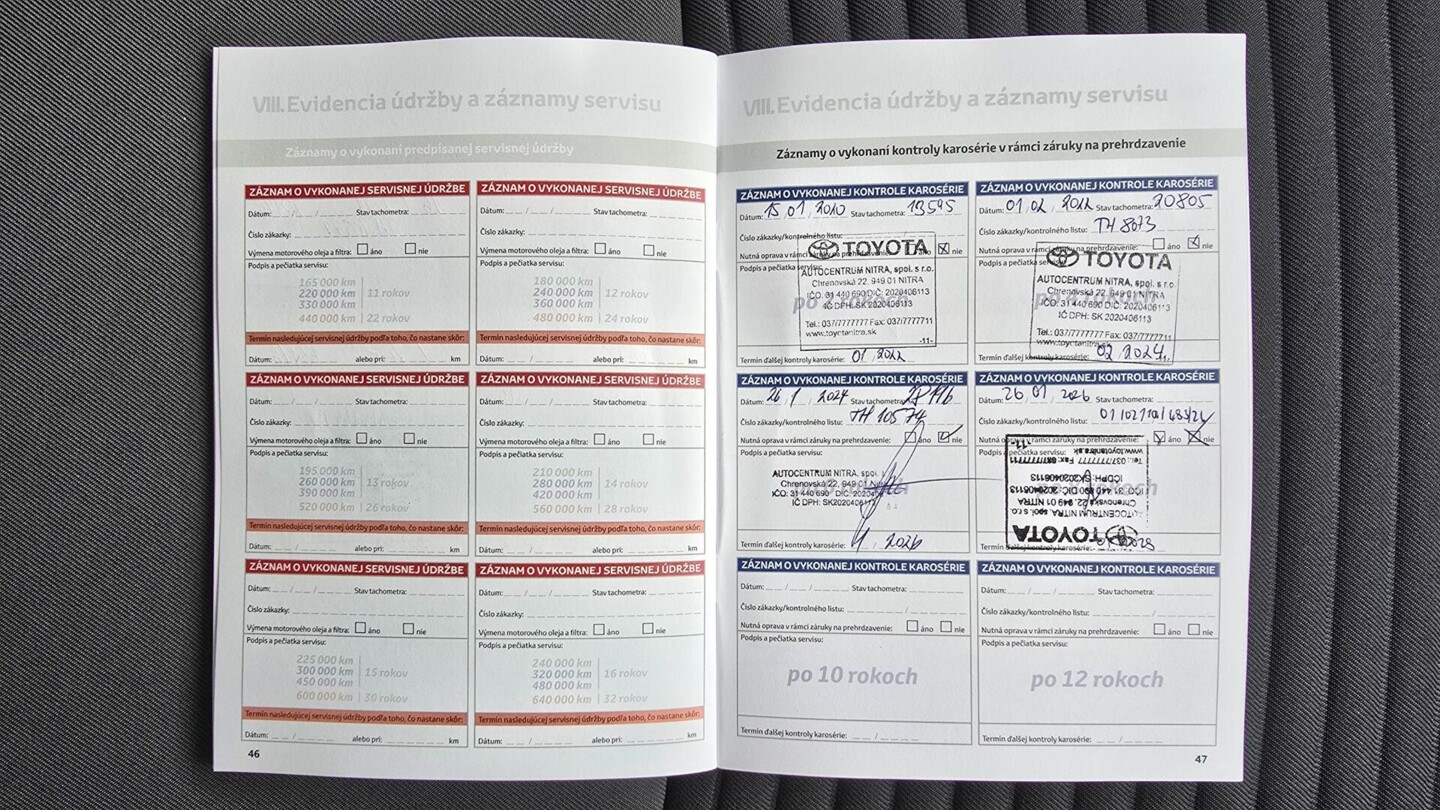 VIII. Evidencia údržby a záznamy servisu
Záznamy o vykonaní predpísanej servisnej údržby
ZÁZNAM O VYKONANEJ SERVISNEJ ÚDRŽBE
Dátum: __ / __ / ____ Stav tachometra: ______
Číslo zákazky:
Výmena motorového oleja a filtra: áno nie
Podpis a pečiatka servisu:
165 000 km
220 000 km 11 rokov
330 000 km
440 000 km 22 rokov
Termín nasledujúcej servisnej údržby podľa toho, čo nastane skôr:
Dátum: __ / __ / ____ alebo pri: ______ km
ZÁZNAM O VYKONANEJ SERVISNEJ ÚDRŽBE
Dátum: __ / __ / ____ Stav tachometra: ______
Číslo zákazky:
Výmena motorového oleja a filtra: áno nie
Podpis a pečiatka servisu:
180 000 km
240 000 km 12 rokov
360 000 km
480 000 km 24 rokov
Termín nasledujúcej servisnej údržby podľa toho, čo nastane skôr:
Dátum: __ / __ / ____ alebo pri: ______ km
ZÁZNAM O VYKONANEJ SERVISNEJ ÚDRŽBE
Dátum: __ / __ / ____ Stav tachometra: ______
Číslo zákazky:
Výmena motorového oleja a filtra: áno nie
Podpis a pečiatka servisu:
195 000 km
260 000 km 13 rokov
390 000 km
520 000 km 26 rokov
Termín nasledujúcej servisnej údržby podľa toho, čo nastane skôr:
Dátum: __ / __ / ____ alebo pri: ______ km
ZÁZNAM O VYKONANEJ SERVISNEJ ÚDRŽBE
Dátum: __ / __ / ____ Stav tachometra: ______
Číslo zákazky:
Výmena motorového oleja a filtra: áno nie
Podpis a pečiatka servisu:
210 000 km
280 000 km 14 rokov
420 000 km
560 000 km 28 rokov
Termín nasledujúcej servisnej údržby podľa toho, čo nastane skôr:
Dátum: __ / __ / ____ alebo pri: ______ km
ZÁZNAM O VYKONANEJ SERVISNEJ ÚDRŽBE
Dátum: __ / __ / ____ Stav tachometra: ______
Číslo zákazky:
Výmena motorového oleja a filtra: áno nie
Podpis a pečiatka servisu:
225 000 km
300 000 km 15 rokov
450 000 km
600 000 km 30 rokov
Termín nasledujúcej servisnej údržby podľa toho, čo nastane skôr:
Dátum: __ / __ / ____ alebo pri: ______ km
ZÁZNAM O VYKONANEJ SERVISNEJ ÚDRŽBE
Dátum: __ / __ / ____ Stav tachometra: ______
Číslo zákazky:
Výmena motorového oleja a filtra: áno nie
Podpis a pečiatka servisu:
240 000 km
320 000 km 16 rokov
480 000 km
640 000 km 32 rokov
Termín nasledujúcej servisnej údržby podľa toho, čo nastane skôr:
Dátum: __ / __ / ____ alebo pri: ______ km
46
VIII. Evidencia údržby a záznamy servisu
Záznamy o vykonaní kontroly karosérie v rámci záruky na prehrdzavenie
ZÁZNAM O VYKONANEJ KONTROLE KAROSÉRIE
Dátum: 15 01 2020 Stav tachometra: 13595
Číslo zákazky/kontrolného listu:
Nutná oprava v rámci záruky na prehrdzavenie: áno
Podpis a pečiatka servisu:
TOYOTA
AUTOCENTRUM NITRA, spol. s r.o.
Chrenovská 22, 949 01 NITRA
IČO: 31 440 690 DIČ: 2020406113
IČ DPH: SK 2020406113
Tel.: 037/7777777 Fax: 037/7777711
www.toyotanitra.sk
-11-
Termín ďalšej kontroly karosérie: 01 2022
ZÁZNAM O VYKONANEJ KONTROLE KAROSÉRIE
Dátum: 01 02 2022 Stav tachometra: 20805
Číslo zákazky/kontrolného listu: TH 8673
Nutná oprava v rámci záruky na prehrdzavenie: áno nie
Podpis a pečiatka servisu:
TOYOTA
AUTOCENTRUM NITRA, spol. s r.o.
Chrenovská 22, 949 01 NITRA
IČO: 31 440 690 DIČ: 2020406113
IČ DPH: SK 2020406113
Tel.: 037/7777777 Fax: 037/7777711
www.toyotanitra.sk
Termín ďalšej kontroly karosérie: 02 2024
ZÁZNAM O VYKONANEJ KONTROLE KAROSÉRIE
Dátum: 26 1 2024 Stav tachometra:
Číslo zákazky/kontrolného listu: TH 10574
Nutná oprava v rámci záruky na prehrdzavenie: áno nie
Podpis a pečiatka servisu:
AUTOCENTRUM NITRA, spol.
Chrenovská 22, 949 01
IČO: 31 440 690 DIČ: 2020406
IČ DPH: SK2020406113
Termín ďalšej kontroly karosérie: 1 2026
ZÁZNAM O VYKONANEJ KONTROLE KAROSÉRIE
Dátum: 26 01 2026 Stav tachometra:
Číslo zákazky/kontrolného listu:
Nutná oprava v rámci záruky na prehrdzavenie: áno nie
Podpis a pečiatka servisu:
TOYOTA
AUTOCENTRUM NITRA, spol. s r.o.
Chrenovská 22, 949 01 NITRA
IČO: 31 440 690 DIČ: 2020406113
IČDPH: SK2020406113
Tel.: 037/7777777 Fax: 037/7777711
www.toyotanitra.sk
-11-
Termín ďalšej kontroly karosérie:
ZÁZNAM O VYKONANEJ KONTROLE KAROSÉRIE
Dátum: __ / __ / ____ Stav tachometra: ______
Číslo zákazky/kontrolného listu: ______ / ____
Nutná oprava v rámci záruky na prehrdzavenie: áno nie
Podpis a pečiatka servisu:
po 10 rokoch
Termín ďalšej kontroly karosérie: __ / ____
ZÁZNAM O VYKONANEJ KONTROLE KAROSÉRIE
Dátum: __ / __ / ____ Stav tachometra: ______
Číslo zákazky/kontrolného listu: ______ / ____
Nutná oprava v rámci záruky na prehrdzavenie: áno nie
Podpis a pečiatka servisu:
po 12 rokoch
Termín ďalšej kontroly karosérie: __ / ____
47